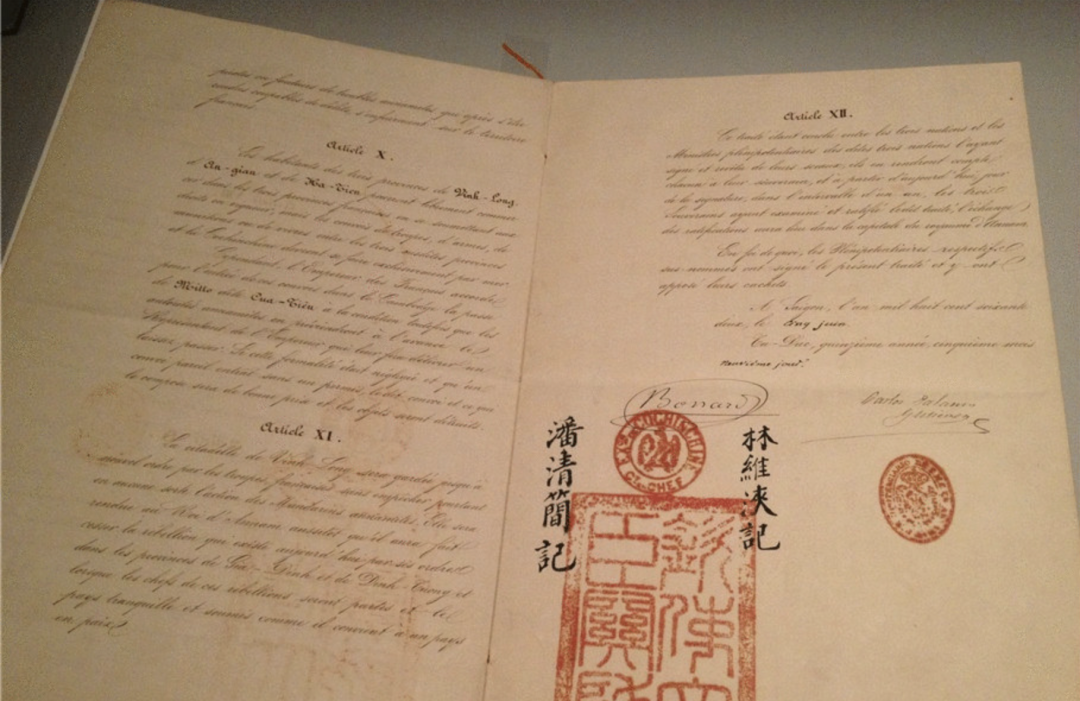 postes ou fauteurs de troubles
rendus coupables de délits, s'enfermeront sur le territoire
français
Article X.
Les habitants des trois provinces de Vinh-Long,
d'An-gian et de Ha-Tien pourront librement commer-
cer dans les trois provinces françaises en se soumettant aux
droits en vigueur, mais les convois de troupes, d'armes, de
munitions ou de vivres entre les trois susdites provinces
et la Cochinchine devront se faire exclusivement par mer
Cependant, l'Empereur des Français accorde,
pour l'entrée de ces convois dans le Cambodge la passe
de Mitto dite Cua-Tiêu, à la condition toutefois que les
autorités annamites en préviendront à l'avance le
Représentant de l'Empereur qui leur fera délivrer un
laissez passer. Si cette formalité était négligée et qu'un
convoi pareil entrât sans un permis, ledit convoi et ce qui
le compose sera de bonne prise et les objets seront détruits.
Article XI.
La citadelle de Vinh-Long sera gardée jusqu'à
nouvel ordre par les troupes françaises sans empêcher pourtant
en aucune sorte l'action des Mandarins annamites. Elle sera
rendue au Roi d'Annam aussitôt qu'il aura fait
cesser la rébellion qui existe aujourd'hui par ses ordres
dans les provinces de Gia-Dinh et de Dinh-Tuong et
lorsque les chefs de ces rébellions seront partis et le
pays tranquille et soumis comme il convient à un pays
en paix
Article XII.
Ce traité étant conclu entre les trois nations et les
Ministres plénipotentiaires des dites trois nations l'ayant
signé et revêtu de leurs sceaux, ils en rendront compte
chacun à leur souverain, et à partir d'aujourd'hui, jour
de la signature, dans l'intervalle d'un an, les trois
souverains ayant examiné et ratifié ledit traité, l'échange
des ratifications aura lieu dans la capitale du royaume d'Annam
En foi de quoi, les Plénipotentiaires respectifs
sus-nommés ont signé le présent traité et y ont
apposé leurs cachets.
A Saïgon, l'an mil huit cent soixante
deux, le cinq juin.
Tu-Duc, quinzième année, cinquième mois
neuvième jour.
Bonard
Carlos Palanca
Gutierrez
潘清簡記
林維浹記
COCHINCHINE
CT EN CHEF
欽使